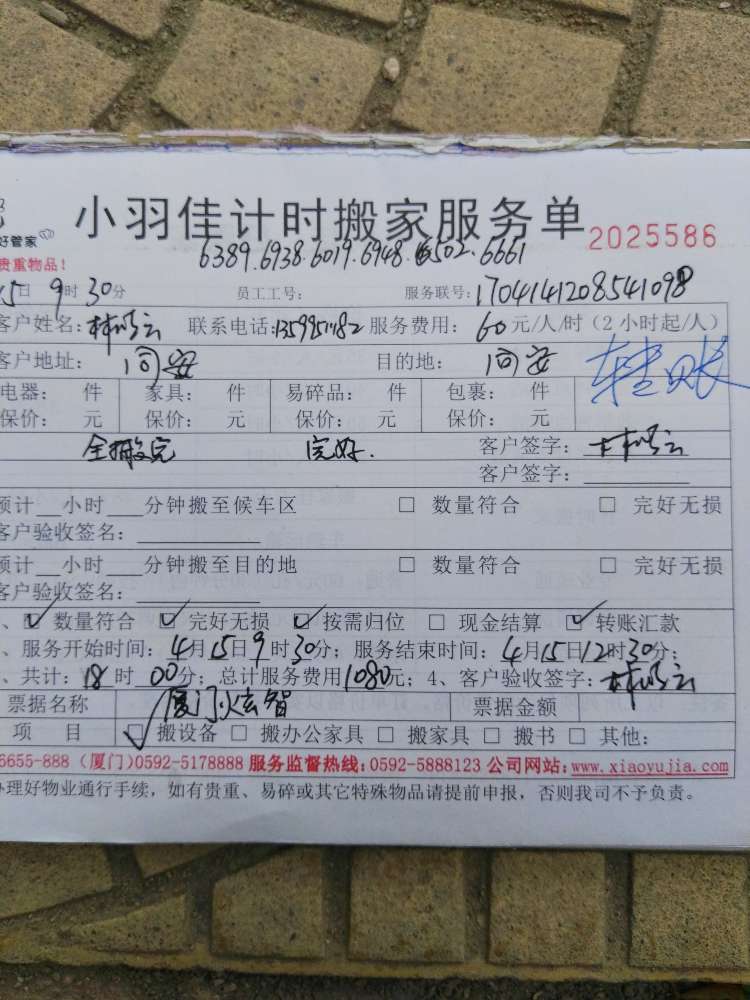 小羽佳计时搬家服务单 2025586
好管家
6389.6938.6019.6948.6502.6661
贵重物品！
15日9时30分 员工工号： 服务联号：1704141208541098
客户姓名： 联系电话： 服务费用：60元/人/时（2小时起/人）
客户地址：同安 目的地：同安 转账
电器： 件 家具： 件 易碎品： 件 包裹： 件
保价： 元 保价： 元 保价： 元 保价： 元
全搬完 完好. 客户签字：
客户签字：
预计__小时___分钟搬至候车区 □ 数量符合 □ 完好无损
客户验收签名：
预计__小时___分钟搬至目的地 □ 数量符合 □ 完好无损
客户验收签名：
、☑ 数量符合 ☑ 完好无损 ☑ 按需归位 □ 现金结算 ☑ 转账汇款
、服务开始时间：4月15日9时30分；服务结束时间：4月15日12时30分；
、共计：18时00分；总计服务费用1080元；4、客户验收签字：
票据名称 厦门 票据金额
项 目 ☑ 搬设备 □ 搬办公家具 □ 搬家具 □ 搬书 □ 其他：
6655-888（厦门）0592-5178888 服务监督热线：0592-5888123 公司网站：www.xiaoyujia.com
办理好物业通行手续，如有贵重、易碎或其它特殊物品请提前申报，否则我司不予负责。